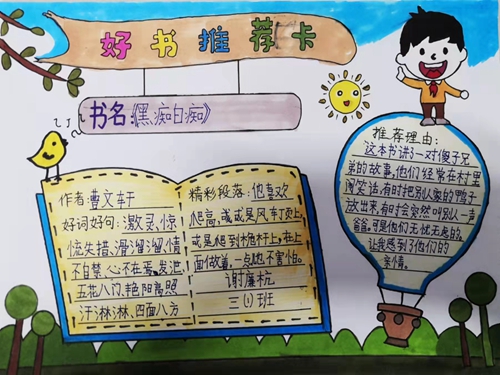 好书推荐卡
书名:《黑痴白痴》
作者:曹文轩
好词好句:激灵、惊
慌失措、滑溜溜、情
不自禁、心不在焉、发泄、
五花八门、艳阳高照
汗淋淋、四面八方
精彩段落:他喜欢
爬高,或或是风车顶上,
或是爬到桅杆上,在上
面待着,一点也不害怕。
谢廉杭
三(1)班
推荐理由:
这本书讲了一对傻子兄
弟的故事,他们经常在村里
闹笑话,有时把别人家的鸭子
放出来,有时会突然叫别人一声
爸爸,可是他们无忧无虑的。
让我感到了他们的
亲情。